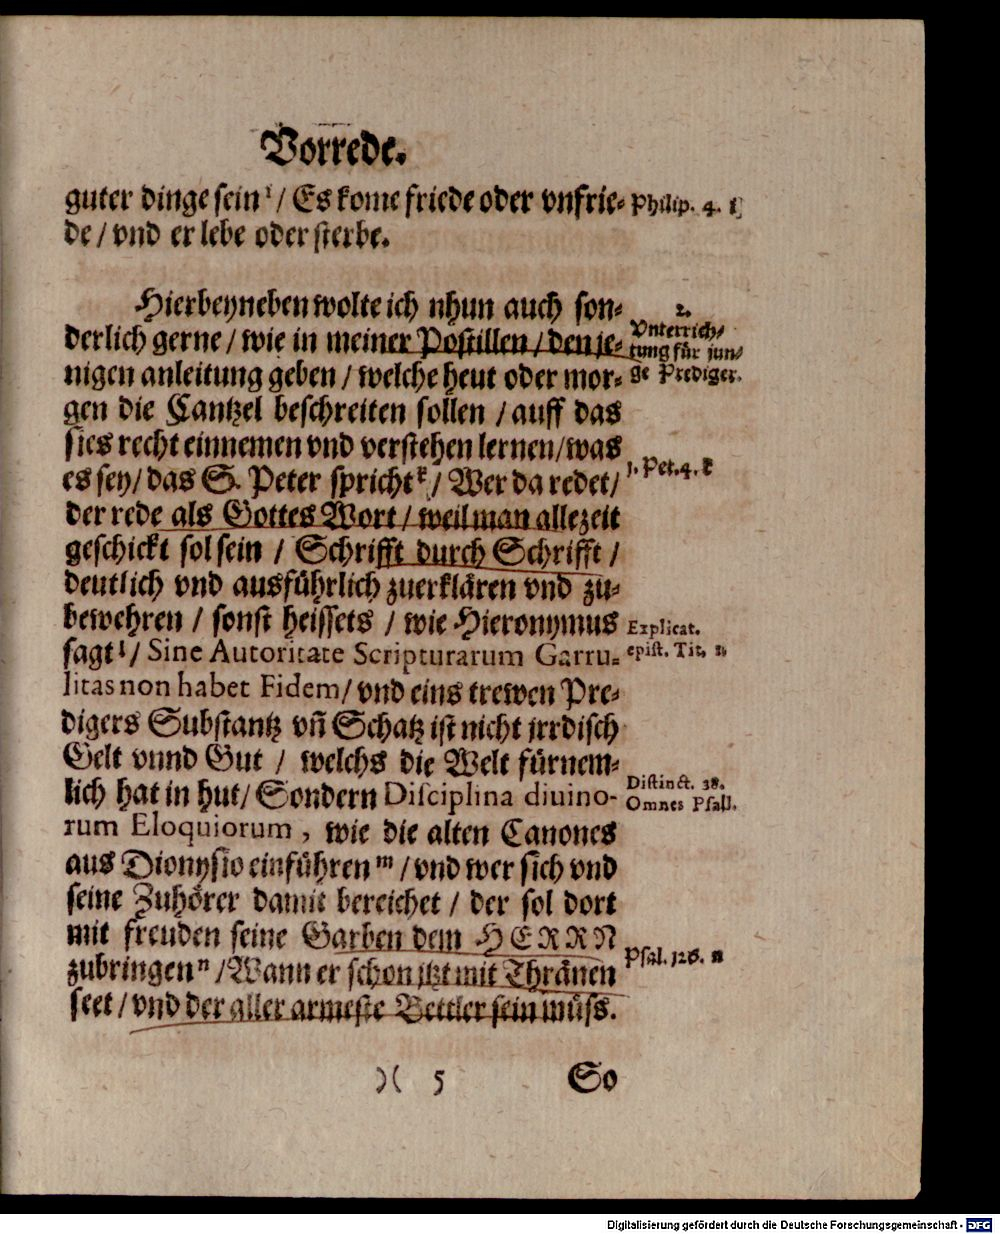 Vorrede.
guter dinge sein i / Es kome friede oder vnfrie- Philip. 4. i
de / vnd er lebe oder sterbe.
Hierbeyneben wolte ich nhun auch son- 2.
derlich gerne / wie in meiner Postillen / den je- Vnterrich-
nigen anleitung geben / welche heut oder mor- tung für jun-
gen die Cantzel beschreiten sollen / auff das ge Prediger.
sies recht einnemen vnd verstehen lernen / was
es sey / das S. Peter spricht k / Wer da redet / 1. Pet. 4. k
der rede als Gottes Wort / weil man allezeit
geschickt sol sein / Schrifft durch Schrifft /
deutlich vnd ausführlich zuerklären vnd zu-
bewehren / sonst heissets / wie Hieronymus Explicat.
sagt l / Sine Autoritate Scripturarum Garru- epist. Tit.
litas non habet Fidem / vnd eins trewen Pre-
digers Substantz vñ Schatz ist nicht jrrdisch
Gelt vnnd Gut / welchs die Welt fürnem-
lich hat in hut / Sondern Disciplina diuino- Distinct. 38.
rum Eloquiorum, wie die alten Canones Omnes Psall.
aus Dionysio einführen m / vnd wer sich vnd
seine Zuhörer damit bereichet / der sol dort
mit freuden seine Garben dem HERRN
zubringen n / Wann er schon jtzt mit Thränen Psal. 126. n
seet / vnd der aller armeste Bettler sein müss.
)( 5 So
Digitalisierung gefördert durch die Deutsche Forschungsgemeinschaft - DFG